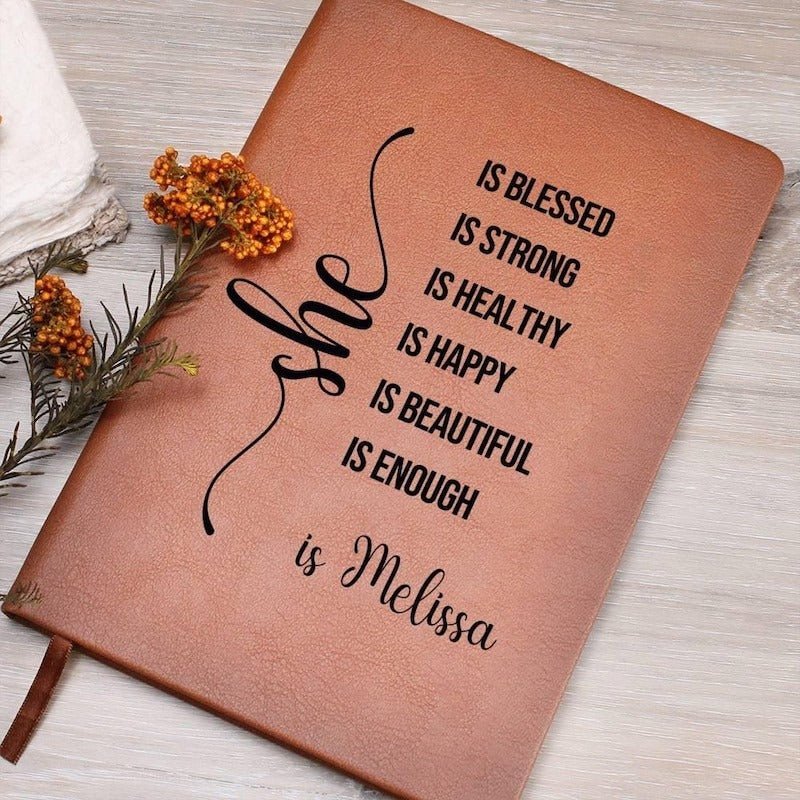 she
IS BLESSED
IS STRONG
IS HEALTHY
IS HAPPY
IS BEAUTIFUL
IS ENOUGH
is Melissa